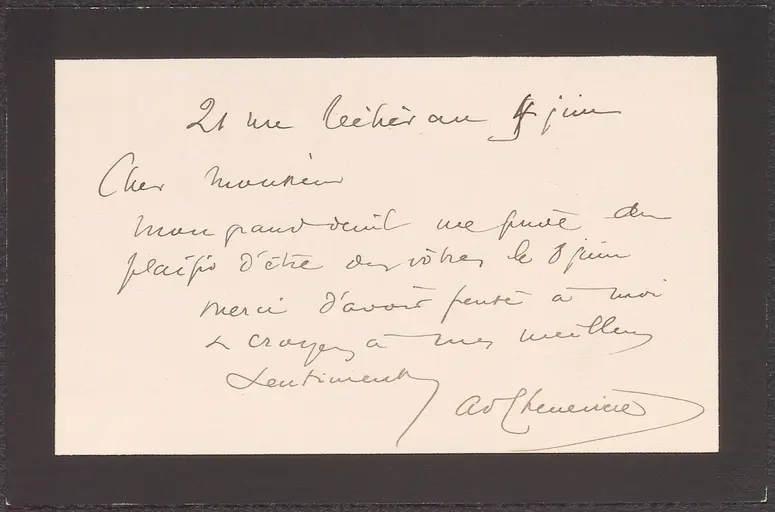 21 rue 4 juin
Cher Monsieur
Mon grand deuil me prive du
plaisir d'être des vôtres le 8 juin
Merci d'avoir pensé à moi
& croyez à mes meilleurs
sentiments
Ad Chenevière